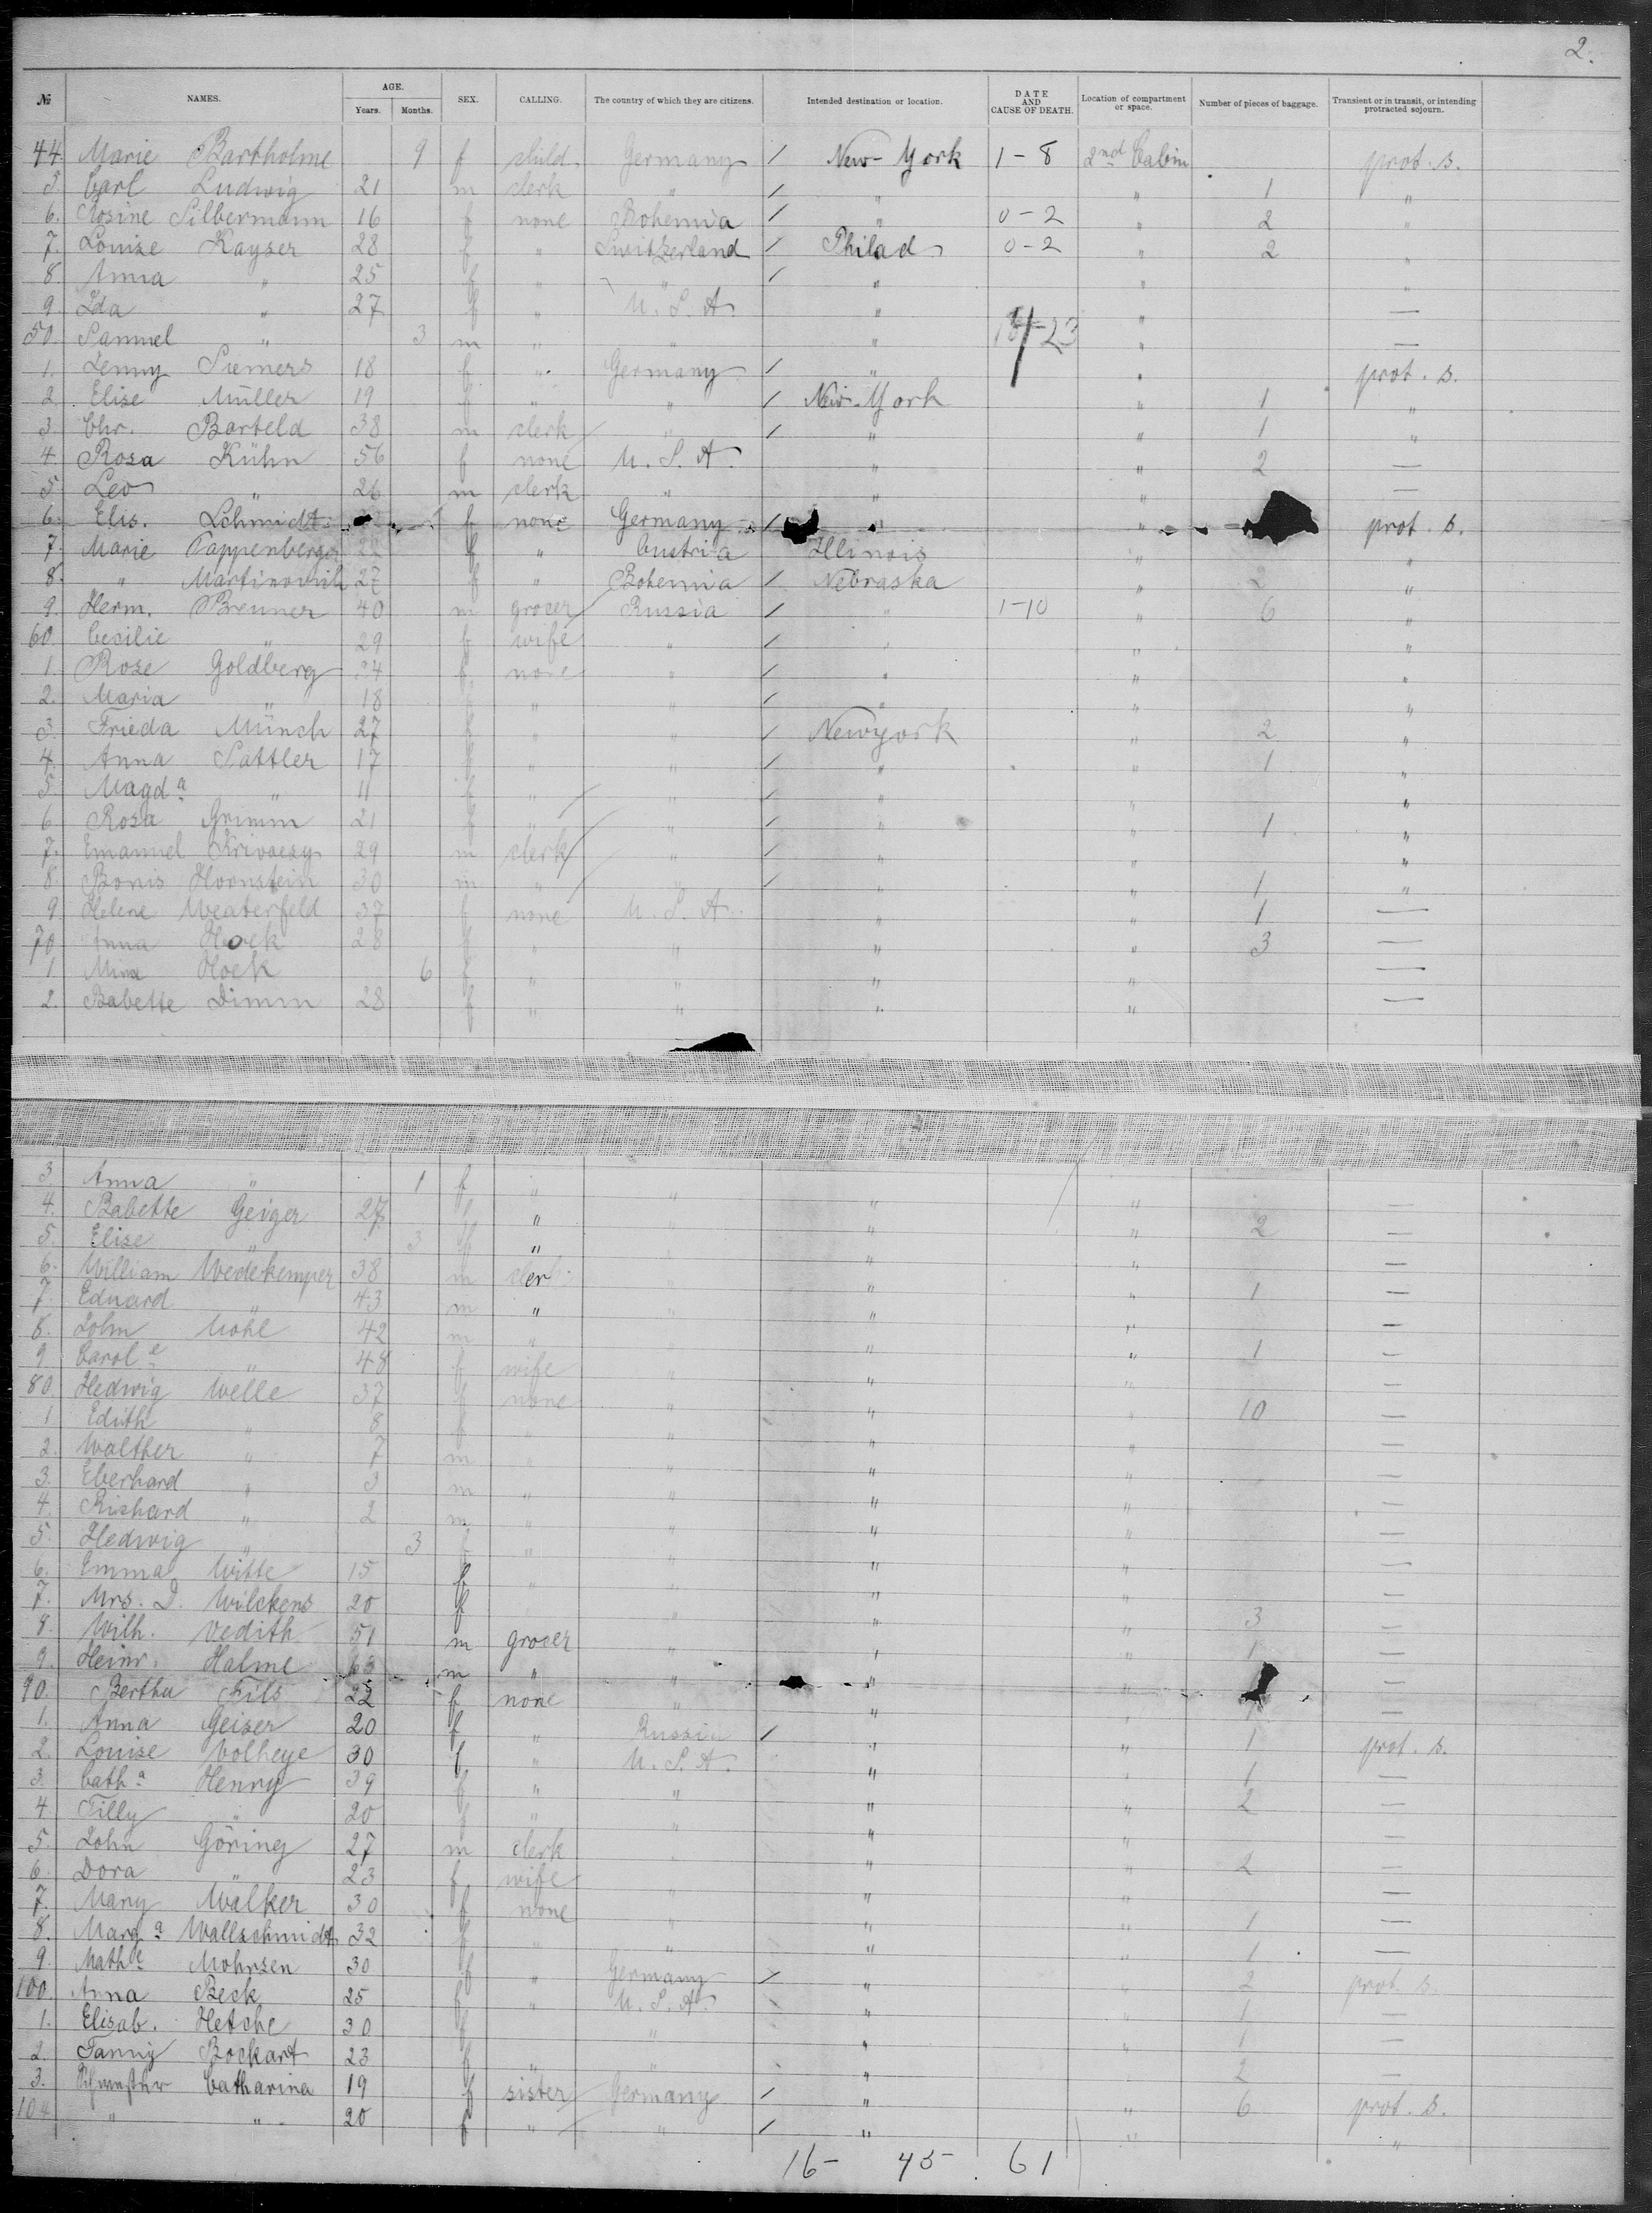 2.
№ NAMES. AGE. Years. Months. SEX. CALLING. The country of which they are citizens. Intended destination or location. DATE AND CAUSE OF DEATH. Location of compartment or space. Number of pieces of baggage. Transient or in transit, or intending protracted sojourn.
44. Marie Bartholme 9 f child Germany / New-York 1-8 2nd Cabin prot. s.
5. Carl Ludwig 21 m clerk " / " " 1 "
6. Rosine Silbermann 16 f none Bohemia / " 0-2 " 2 "
7. Louise Kayser 28 f " Switzerland / Philad 0-2 " 2 "
8. Anna " 25 f " " / " " "
9. Ida " 27 f " U.S.A. " " —
50. Samuel " 3 m " " " " —
1. Lenny Siemers 18 f " Germany / " " prot. s.
2. Elise Müller 19 f " " / New-York " 1 "
3. Chr. Barteld 38 m clerk " / " " 1 "
4. Rosa Kühn 56 f none U.S.A. " " 2 —
5. Leo " 26 m clerk " " " —
6. Elis. Schmidt f none Germany / " " prot. s.
7. Marie Pappenberger 22 f " Austria Illinois " "
8. " 27 f " Bohemia / Nebraska " 2 "
9. Herm. Brenner 40 m grocer Russia / " 1-10 " 6 "
60. Cecilie " 29 f wife " / " " "
1. Rose Goldberg f none " / " " "
2. Maria " 18 f " " / " " "
3. Frieda Münch 27 f " " / Newyork " 2 "
4. Anna Sattler 17 f " " / " " 1 "
5. Magda " 11 f " " / " " "
6. Rosa Grimm 21 f " " / " " 1 "
7. Emanuel 29 m clerk " / " " "
8. Boris Hornstein 30 m " " / " " 1 "
9. Helene Weaterfeld 37 f none U.S.A. " " 1 —
70 Anna Hock 28 f " " " " 3 —
1 Mina Hock 6 f " " " " —
2. Babette Dimm 28 f " " " " —
3 Anna " 1 f " " " " —
4. Babette Geiger 27 f " " " " 2 —
5. Elise " 3 f " " " " —
6. William Wedekemper 38 m cler " " " 1 —
7. Eduard " 43 m " " " " —
8. John Uohl 42 m " " " " 1 —
9. Carole " 48 f wife " " " —
80. Hedwig Welle 37 f none " " " 10 —
1. Edith " 8 f " " " " —
2. Walther " 7 m " " " " —
3. Eberhard " 3 m " " " " —
4. Richard " 2 m " " " " —
5. Hedwig " 3 f " " " " —
6. Emma Witte 15 f " " " " —
7. Mrs. D. Wilckens 20 f " " " 3 —
8. Wilh. Vedith 51 m grocer " " " 1 —
9. Heinr. Halme 63 m " " " —
90. Bertha Fils 22 f none " " " —
1. Anna Geiser 20 f " Russia / " " 1 prot. s.
2. Louise Volheye 30 f " U.S.A. " " 1 —
3. Catha Henry 39 f " " " " 2 —
4. Tilly " 20 f " " " " —
5. John Göring 27 m clerk " " " 2 —
6. Dora " 23 f wife " " " —
7. Mary Walker 30 f none " " " 1 —
8. Marga Wallschmidt 32 f " " " " 1 —
9. Mathe Mohrsen 30 f " Germany / " " 2 prot. s.
100. Anna Beck 25 f " U.S.A. " " 1 —
1. Elisab. Hetche 30 f " " " 1 —
2. Fanny Bockart 23 f " " " 2 —
3. Schwester Catharina 19 f sister Germany / " " 6 prot. s.
104 " " 20 f " " / " " "
16- 45- 61